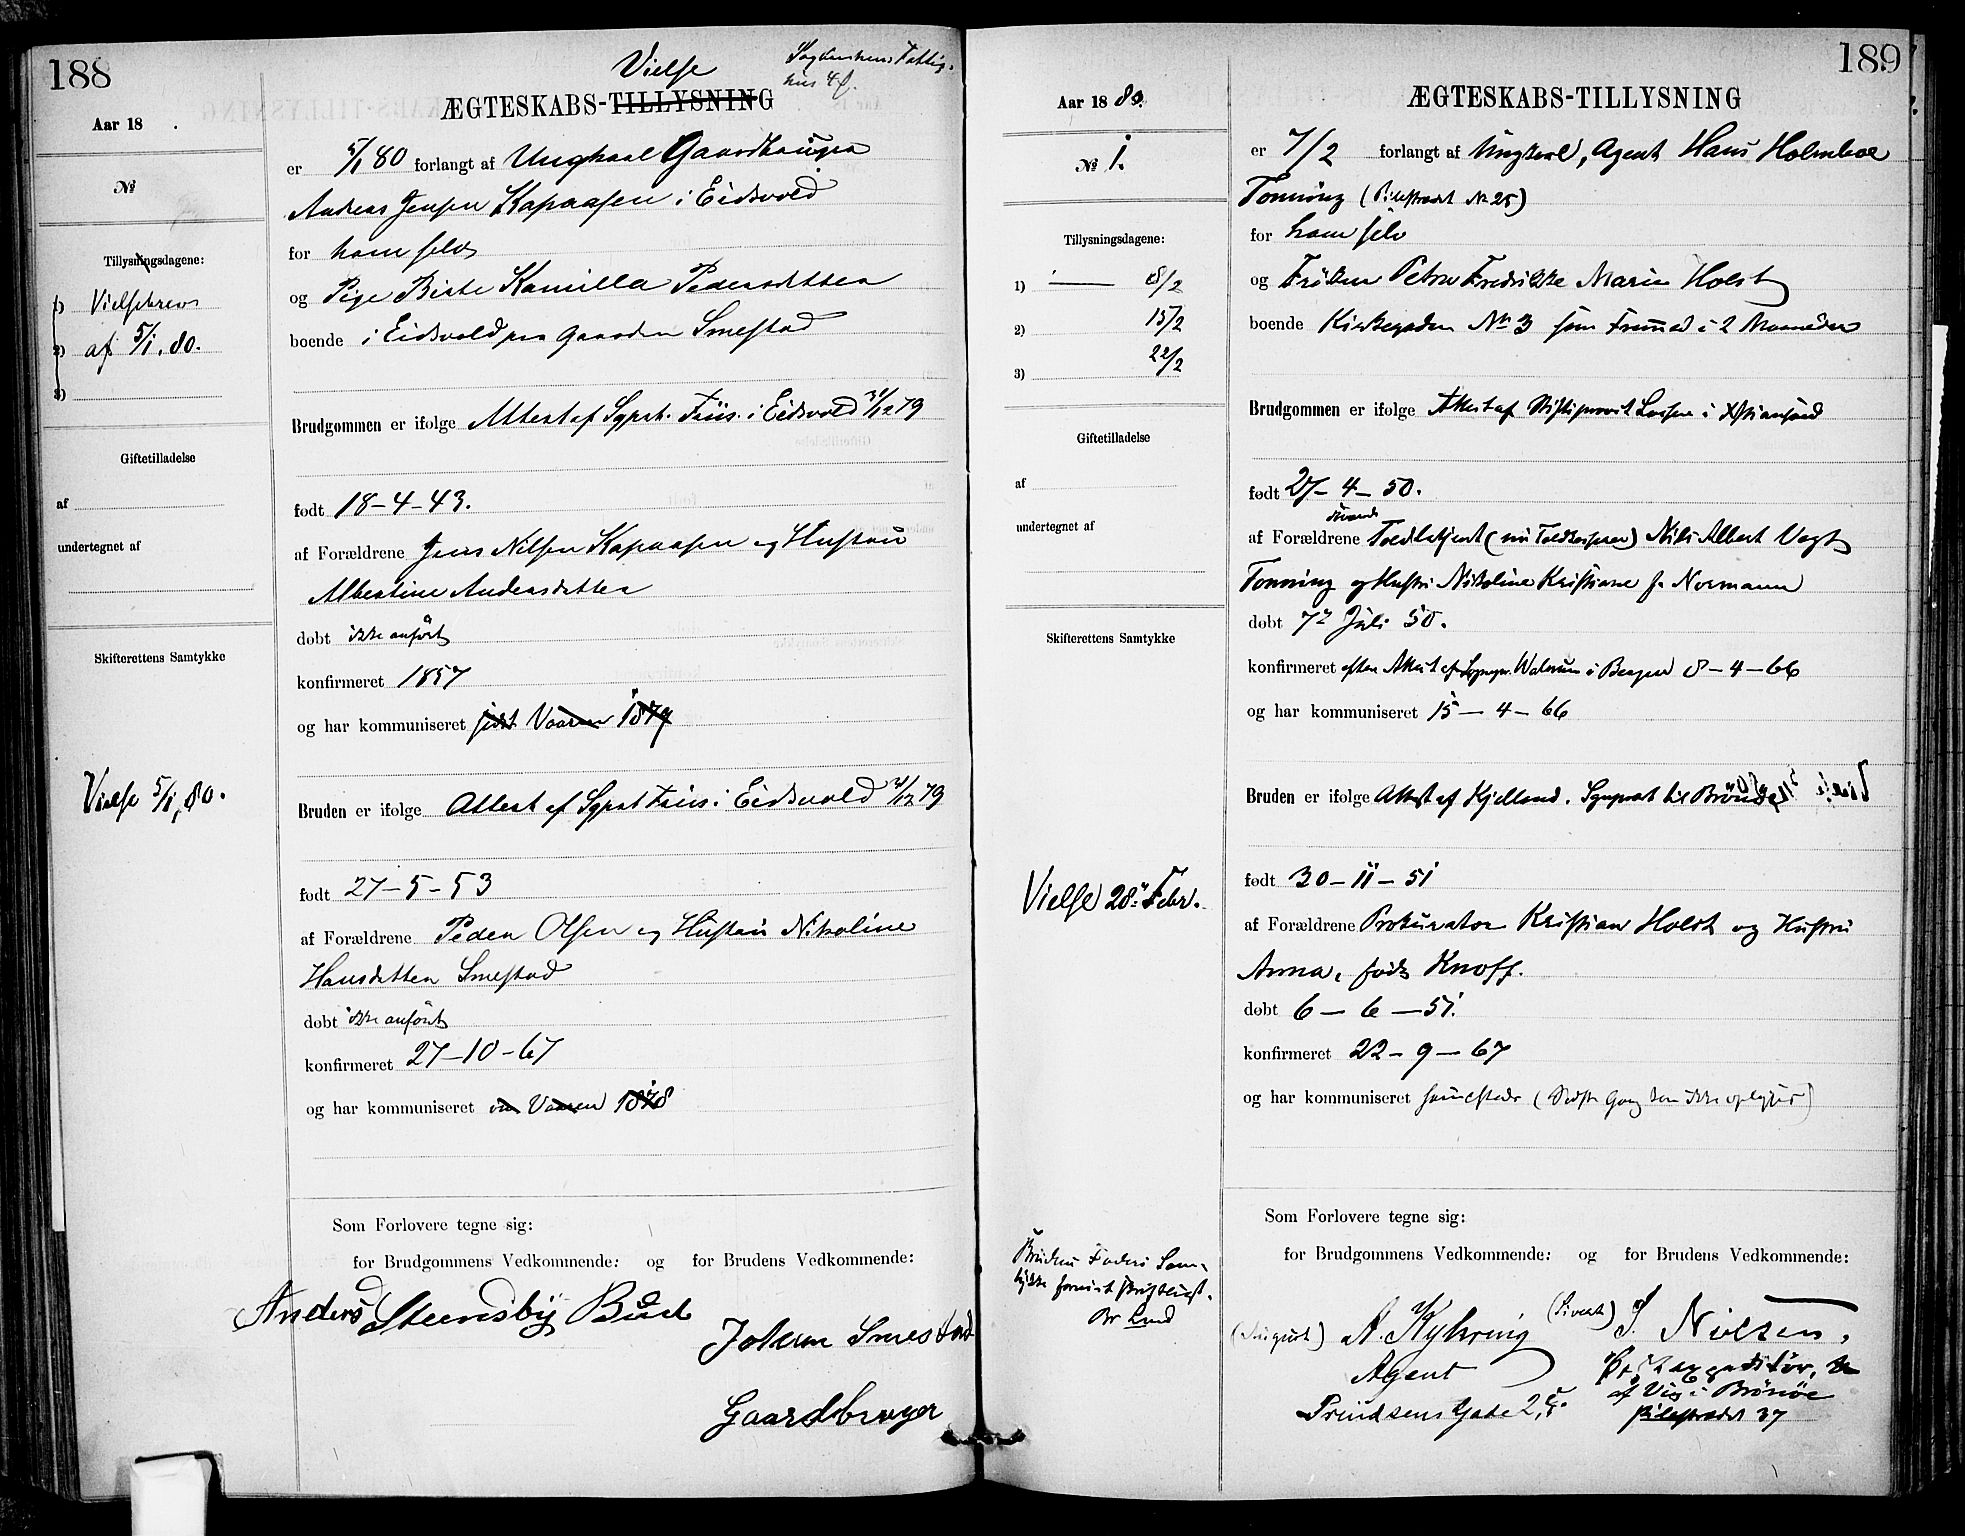 188
Vielse
ÆGTESKABS-TILLYSNING
Aar 18 .
№
Tillysningsdagene:
1) Vielsebrev
2) af 5/1. 80.
3)
Giftetilladelse
af
undertegnet af
Skifterettens Samtykke
Vielse 5/1, 80.
er 5/1 80 forlangt af Ungkarl Gaardbruger
Andreas Jensen Kapaasen i Eidsvold
for ham selv
og Pige Birte Kamilla Pedersdatter
boende i Eidsvold paa Gaarden Smestad
Brudgommen er ifølge Attest af Sgprst. Friis i Eidsvold 31/12 79
født 18-4-43.
af Forældrene Jens Nilsen Kapaasen og Hustru
Albertine Andersdatter
døbt ikke anført
konfirmeret 1857
og har kommuniseret sidst Vaaren 1879
Bruden er ifølge Attest af Sgprst Friis i Eidsvold 31/12 79
født 27-5-53
af Forældrene Peder Olsen og Hustru Nikoline
Hansdatter Smestad
døbt ikke anført
konfirmeret 27-10-67
og har kommuniseret Vaaren 1878
Som Forlovere tegne sig:
for Brudgommens Vedkommende: og for Brudens Vedkommende:
Anders Steensby Bud
Johan Smestad
Gaardbruger
189
Aar 1880.
ÆGTESKABS-TILLYSNING
№ 1.
Tillysningsdagene:
1) 8/2
2) 15/2
3) 22/2
Giftetilladelse
af
undertegnet af
Skifterettens Samtykke
Vielse 28 Febr.
Brudens Faders Sam-
tykke forevist skriftligt.
Br Lund
er 7/2 forlangt af Ungkarl, Agent Hans Holmboe
Tonning (Pilestrædet № 25)
for ham selv
og Frøken Petra Fredrikke Marie Holst
boende Kirkegaden № 3 som Fremmed i 2 Maaneder
Brudgommen er ifølge Attest af Stiftsprovst Lassen i Kristiansand
født 27-4-50.
af Forældrene Toldbetjent (nu Toldkasserer) Nils Albert Vogt
Tonning og Hustru Nikoline Kristiane f. Normann
døbt 7 Juli 50.
konfirmeret efter Attest af Sognepr. Walnum i Bergen 8-4-66
og har kommuniseret 15-4-66
Bruden er ifølge Attest af Kjelland. Sgnprst til Brönö
født 30-11-51
af Forældrene Prokurator Kristian Holst og Hustru
Anna, født Knoff.
døbt 6-6-51.
konfirmeret 22-9-67
og har kommuniseret sammesteds (Sidste Gang kan ikke oplyses)
Som Forlovere tegne sig:
for Brudgommens Vedkommende: og for Brudens Vedkommende:
(August) A. Kyhring
Agent
Prindsens Gade 2,
(Sivert) S. Nielsen,
af Vig i Brönöe
Pilestrædet 37